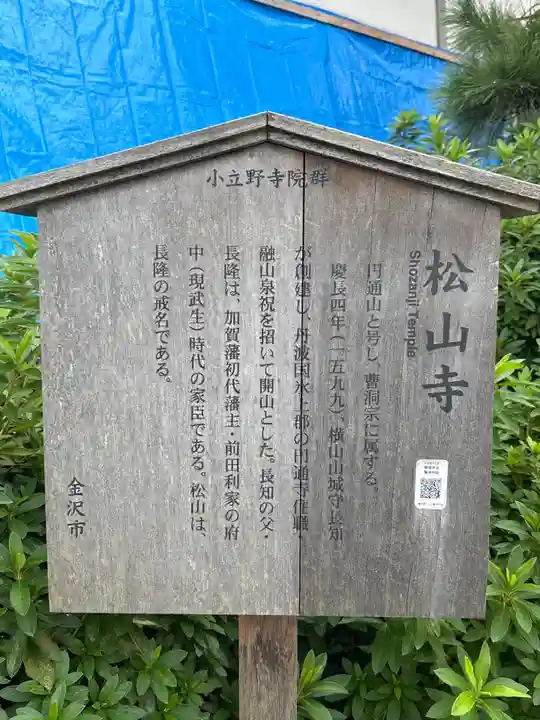 小立野寺院群
松山寺
Shozanji Temple
円通山と号し、曹洞宗に属する。
慶長四年(一五九九)、横山山城守長知
が創建し、丹波国氷上郡の円通寺住職・
融山泉祝を招いて開山とした。長知の父・
長隆は、加賀藩初代藩主・前田利家の府
中(現武生)時代の家臣である。松山は、
長隆の戒名である。
金沢市